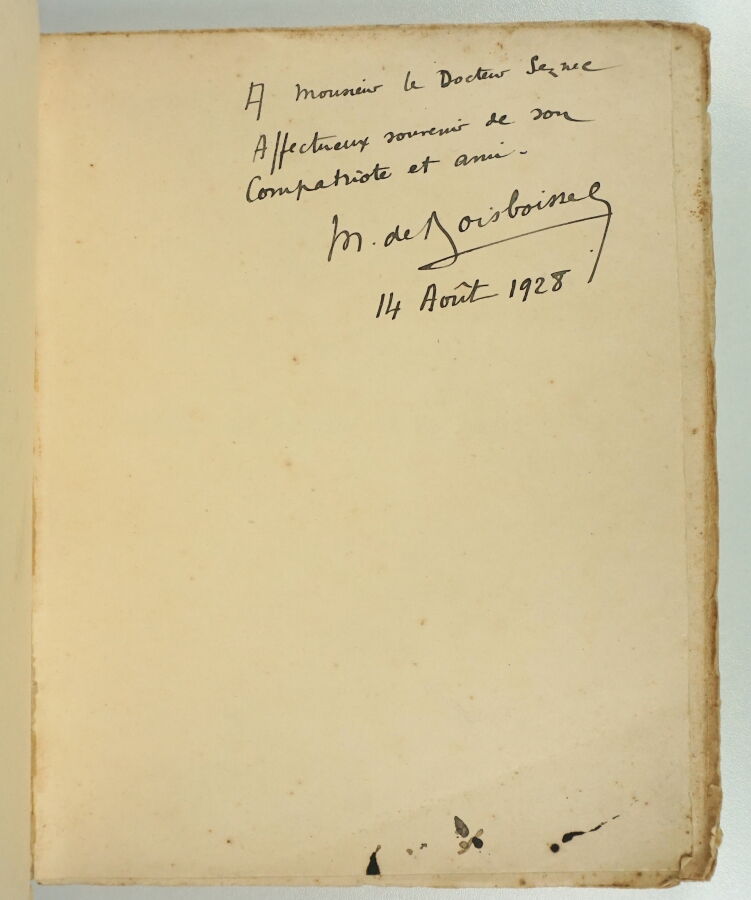 A Monsieur le Docteur Seznec
Affectueux souvenir de son
Compatriote et ami.
M. de Boisboissel
14 Août 1928